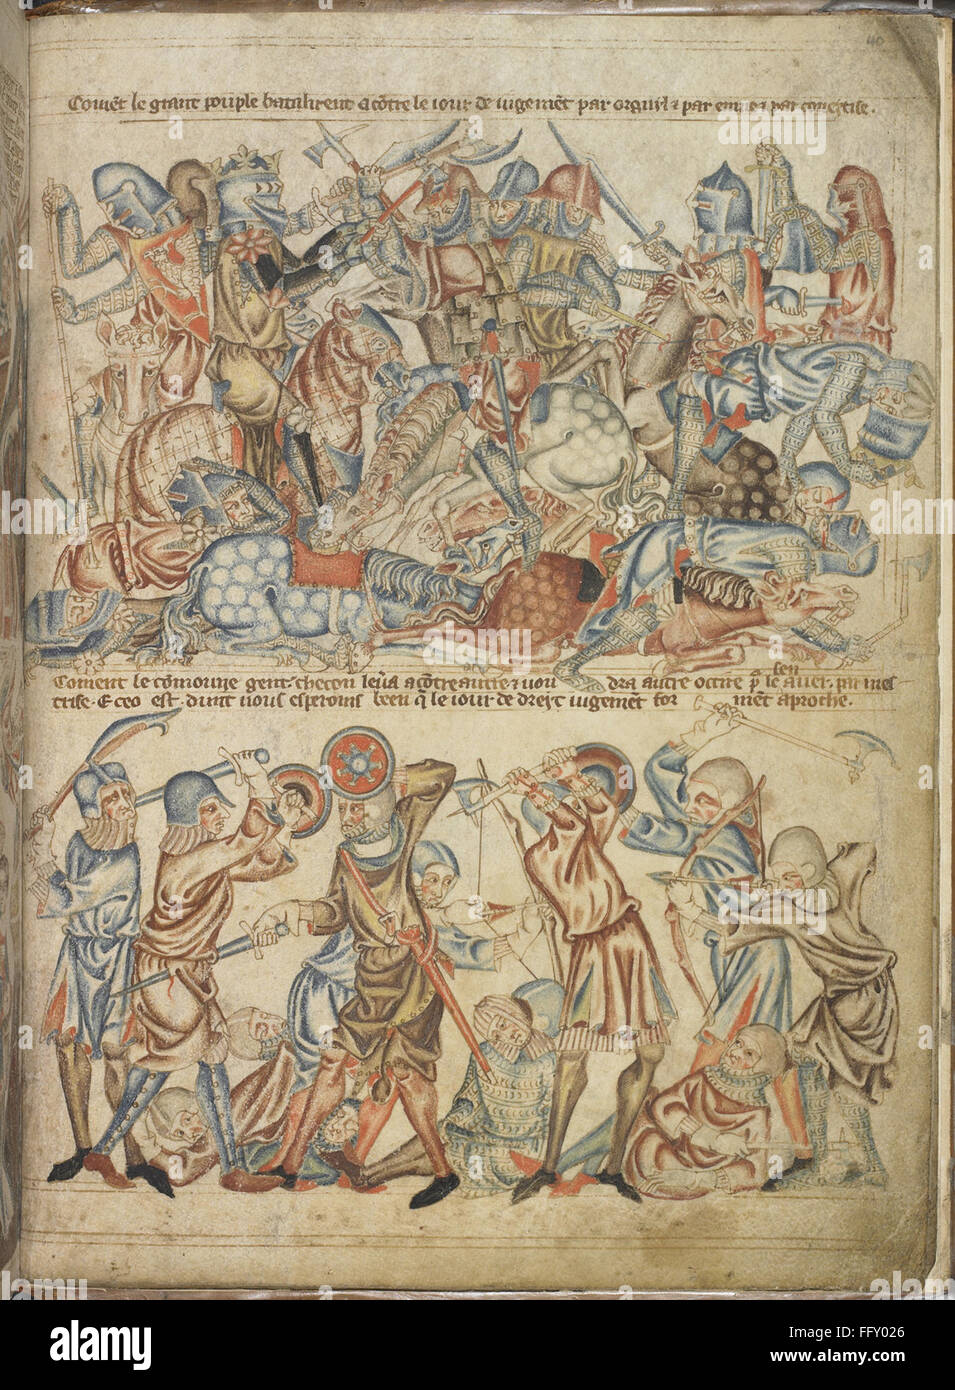 40
Coment le grant pouple bataillent a cōtre le iour de iugemēt par orguyl & par enuye & par coueytise.
ben
Coment le cōmoune gent. checon leu'a a cōtre autre & vou dra autre occire le auer. par mes
trise. E ceo est. dunt nous esperoins been q̄ le iour de dreyt iugemēt for mēt aproche.
alamy
Image ID: FFY026
www.alamy.com